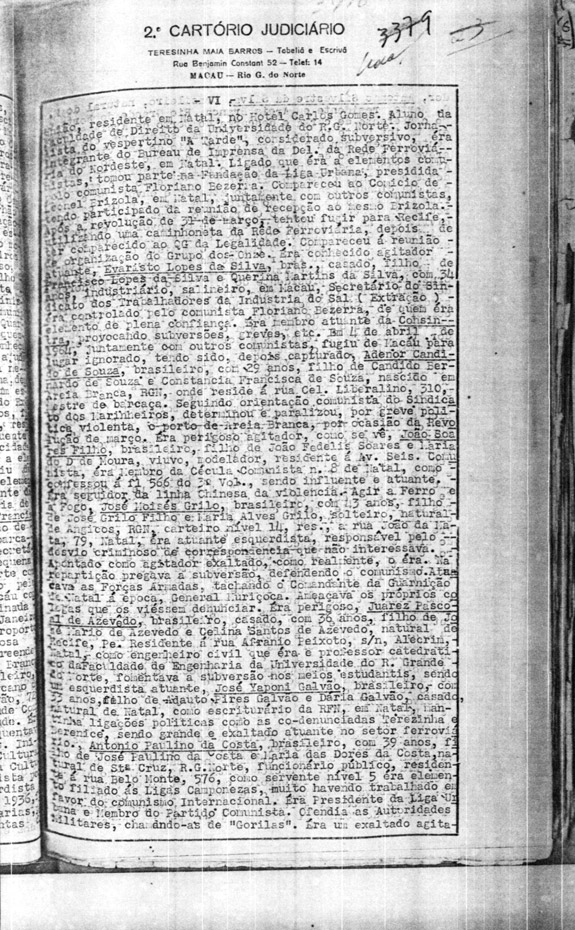 3379
2.º CARTÓRIO JUDICIÁRIO
TERESINHA MAIA BARROS — Tabeliã e Escrivã
Rua Benjamin Constant 52 — Telef: 14
MACAU — Rio G. do Norte
- VI -
residente em Natal, no Hotel Carlos Gomes. Aluno da
de Direito da Universidade do R.G. Norte. Jorna-
lista do vespertino "A Tarde", considerado subversivo, éra
integrante do Bureau de Imprensa da Del. da Rede Ferroviá-
ria do Nordeste, em Natal. Ligado que éra à elementos comu-
nistas, tomou parte na Fundação da Liga Urbana, presidida
comunista Floriano Bezerra. Compareceu ao Comício de
Brizola, em Natal, juntamente com outros comunistas,
tendo participado da reunião de recepção ao mesmo Brizola.
Após a revolução de 31 de março, tentou fugir para Recife,
utilizando uma caminhoneta da Rede Ferroviária, depois de
ter comparecido ao QG da Legalidade. Compareceu á reunião
de organização do Grupo dos Onze. Éra conhecido agitador
atuante, Evaristo Lopes da Silva, bras., casado, filho de
Francisco Lopes da Silva e Querina Martins da Silva, com 34
anos, industriário, salineiro, em Macau, Secretário do Sin-
dicato dos Trabalhadores da Industria do Sal ( Extração ) -
éra controlado pelo comunista Floriano Bezerra, de quem éra
elemento de plena confiança. Éra membro atuante da Cohsin-
tra, provocando subversões, greves, etc. Em 1º de abril de
1964, juntamente com outros comunistas, fugiu de Macau para
lugar ignorado, tendo sido, depois capturado, Adenor Candi-
do de Souza, brasileiro, com 29 anos, filho de Candido Ber-
nardo de Souza e Constancia Francisca de Souza, nascido em
Areia Branca, RGN, onde reside á rua Cel. Liberalino, 310,
mestre de barcaça. Seguindo orientação comunista do Sindica
to dos Marinheiros, determinou e paralizou, por greve polí-
tica violenta, o porto de Areia Branca, por ocasião da Revo
lução de março. Éra perigoso agitador, como se vê, João Soa
res Filho, brasileiro, filho de João Fadelis Soares e Maria
do D de Moura, viuvo, modelador, residente á Av. Seis. Comu
nista, éra Membro da Cécula Comunista n. 8 de Natal, como
confessou á fl 566 do 3º Vol., sendo influente e atuante.
Éra seguidor da linha Chinesa da violencia. Agir a Ferro e
a Fogo, José Moisés Grilo, brasileiro, com 43 anos, filho
de José Grilo Filho e Maria Alves Grilo, solteiro, natural
de Angicos, RGN, carteiro nível 14, res., a rua João da Ma-
ta, 79, Natal, éra atuante esquerdista, responsável pelo
desvio criminoso de correspondencia que não interessava.
Apontado como agitador exaltado, como realmente, o éra. Na
repartição pregava a subversão, defendendo o comunismo. Ata-
cava as Forças Armadas, tachando o Comandante da Guarnição
de Natal á época, General Muriçoca. Ameaçava os próprios co
legas que os viéssem denunciar. Éra perigoso, Juarez Pasco-
al de Azevêdo, brasileiro, casado, com 36 anos, filho de Jo
sé Mario de Azevedo e Celina Santos de Azevedo, natural de
Recife, Pe. Residente á rua Afranio Peixoto, s/n, Alecrim,
Natal, como engenheiro civil que éra e professor catedráti-
co da Faculdade de Engenharia da Universidade do R. Grande
do Norte, fomentava a subversão nos meios estudantis, sendo
um esquerdista atuante, José Yaponi Galvão, brasileiro, com
anos, filho de Adauto Pires Galvão e Daria Galvão, casado,
natural de Natal, como escriturário da RFN, em Natal, man-
tinha ligações politicas como as co-denunciadas Terezinha e
Berenice, sendo grande e exaltado atuante no setor ferroviá
rio., Antonio Paulino da Costa, brasileiro, com 39 anos, fi
lho de José Paulino da Costa e Maria das Dores da Costa, na-
tural de Stª Cruz, R.G.Norte, funcionário público, residen-
te á rua Belo Monte, 576, como servente nível 5 éra elemen-
to filiado ás Ligas Camponezas, muito havendo trabalhado em
favor do comunismo Internacional. Éra Presidente da Liga Ur
bana e Membro do Partido Comunista. Ofendia as Autoridades
Militares, chamando-as de "Gorilas". Éra um exaltado agita-